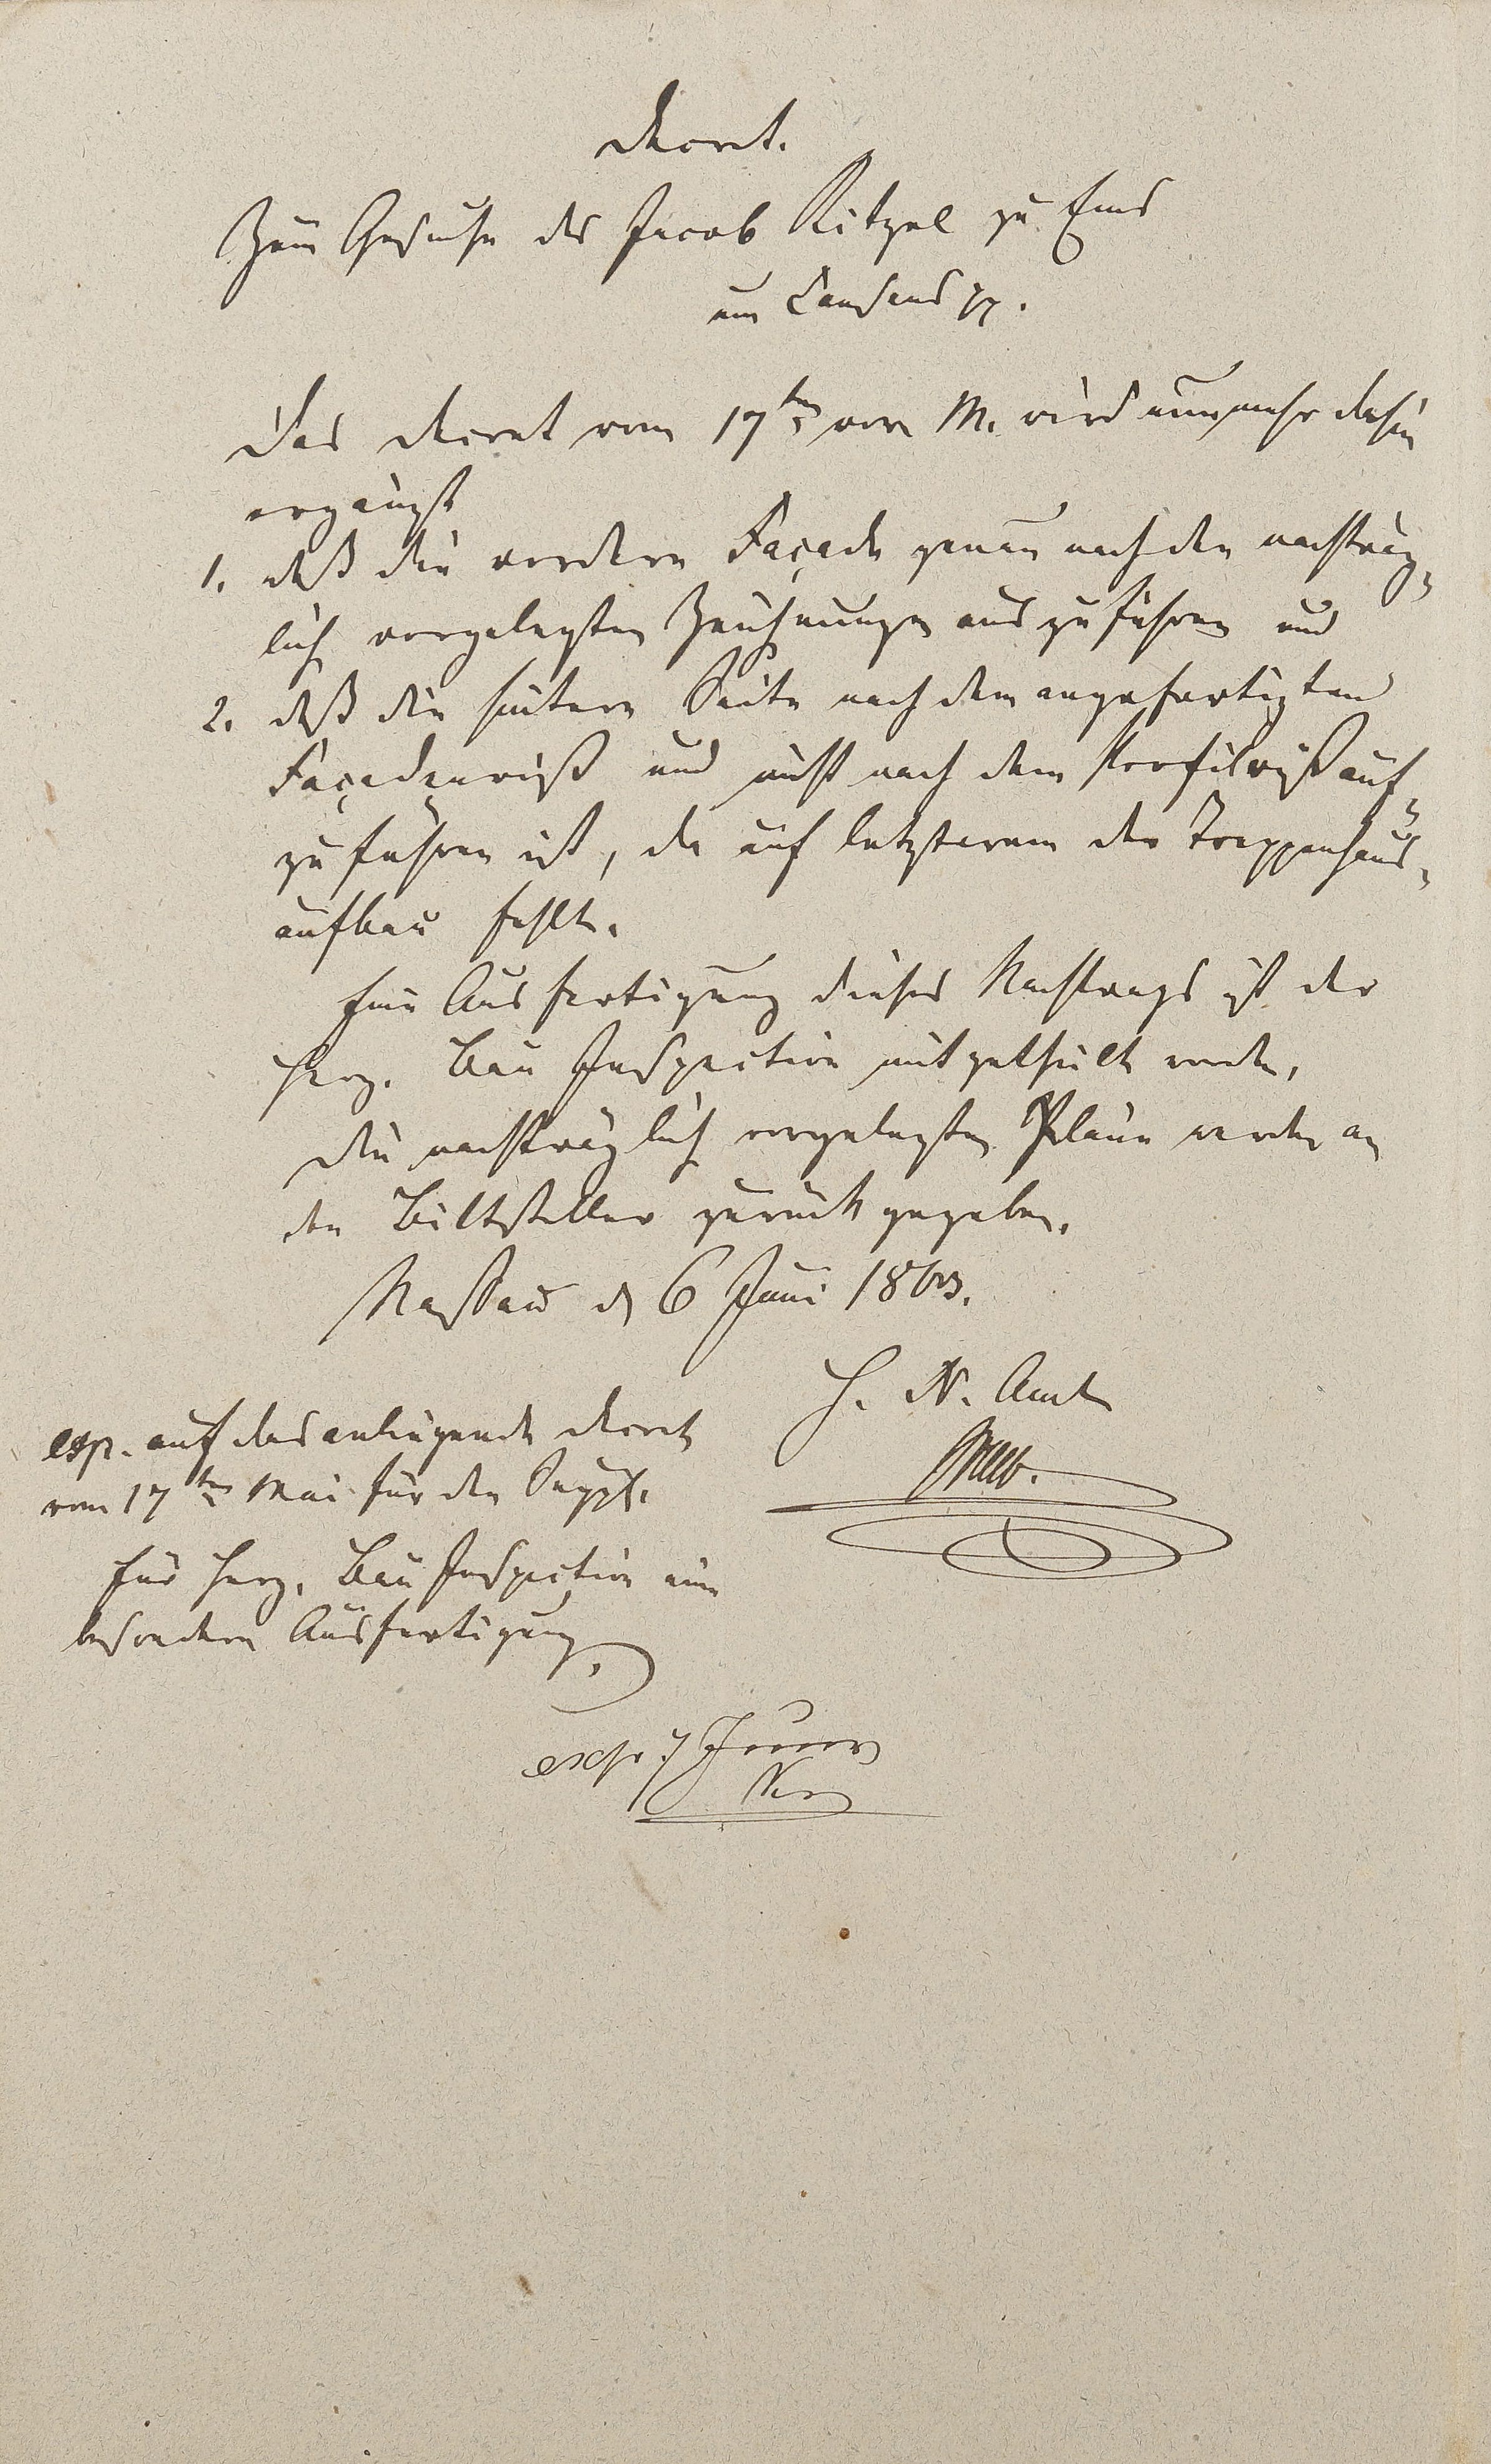 Decret.
Zum Gesuche des Jacob Ritzel zu Ems
um Bauconsens pp.
Das Decret vom 17ten vor. M. wird nunmehr dahin
ergänzt
1. daß die vordere Façade genau nach den nachträg-
lich vorgelegten Zeichnungen auszuführen und
2. daß die hintere Seite nach dem angefertigten
Façadenriß und nicht nach dem Profilriß auf-
zuführen ist, da auf letzterem der Treppenhaus-
aufbau fehlt.
Eine Ausfertigung dieses Nachtrags ist der
Herz. Bau Inspection mitgetheilt worden,
die nachträglich vorgelegten Pläne werden an
den Bittsteller zurück gegeben.
Nassau d 6 Juni 1863.
H. N. Amt
exp. auf das anliegende Decret
vom 17ten Mai für den Suppl.
für Herz. Bau Inspection eine
besondere Ausfertigung.
exp. 7 Juni